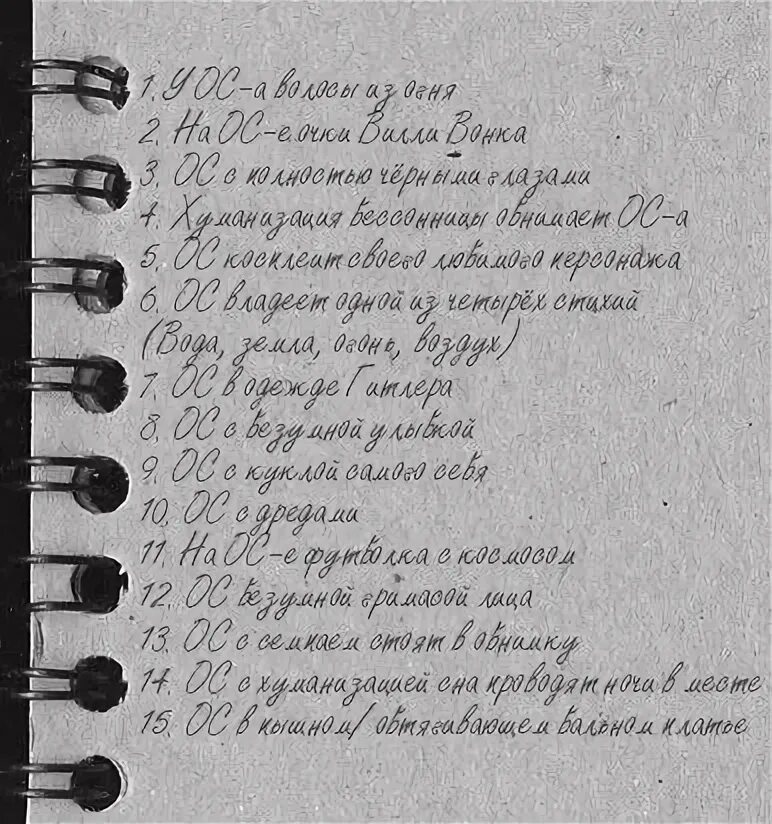 1. У ОС-а волосы из огня
2. На ОС-е очки Вилли Вонка
3. ОС с полностью чёрными глазами
4. Хуманизация бессонницы обнимает ОС-а
5. ОС косплеит своего любимого персонажа
6. ОС владеет одной из четырёх стихий
(Вода, земла, огонь, воздух)
7. ОС в одежде Гитлера
8. ОС с безумной улыбкой
9. ОС с куклой самого себя
10. ОС с дредами
11. На ОС-е футболка с космосом
12. ОС безумной гримасой лица
13. ОС с семпаем стоят в обнимку
14. ОС с хуманизацией сна проводят ночи в месте
15. ОС в пышном/ обтягивающем бальном платье